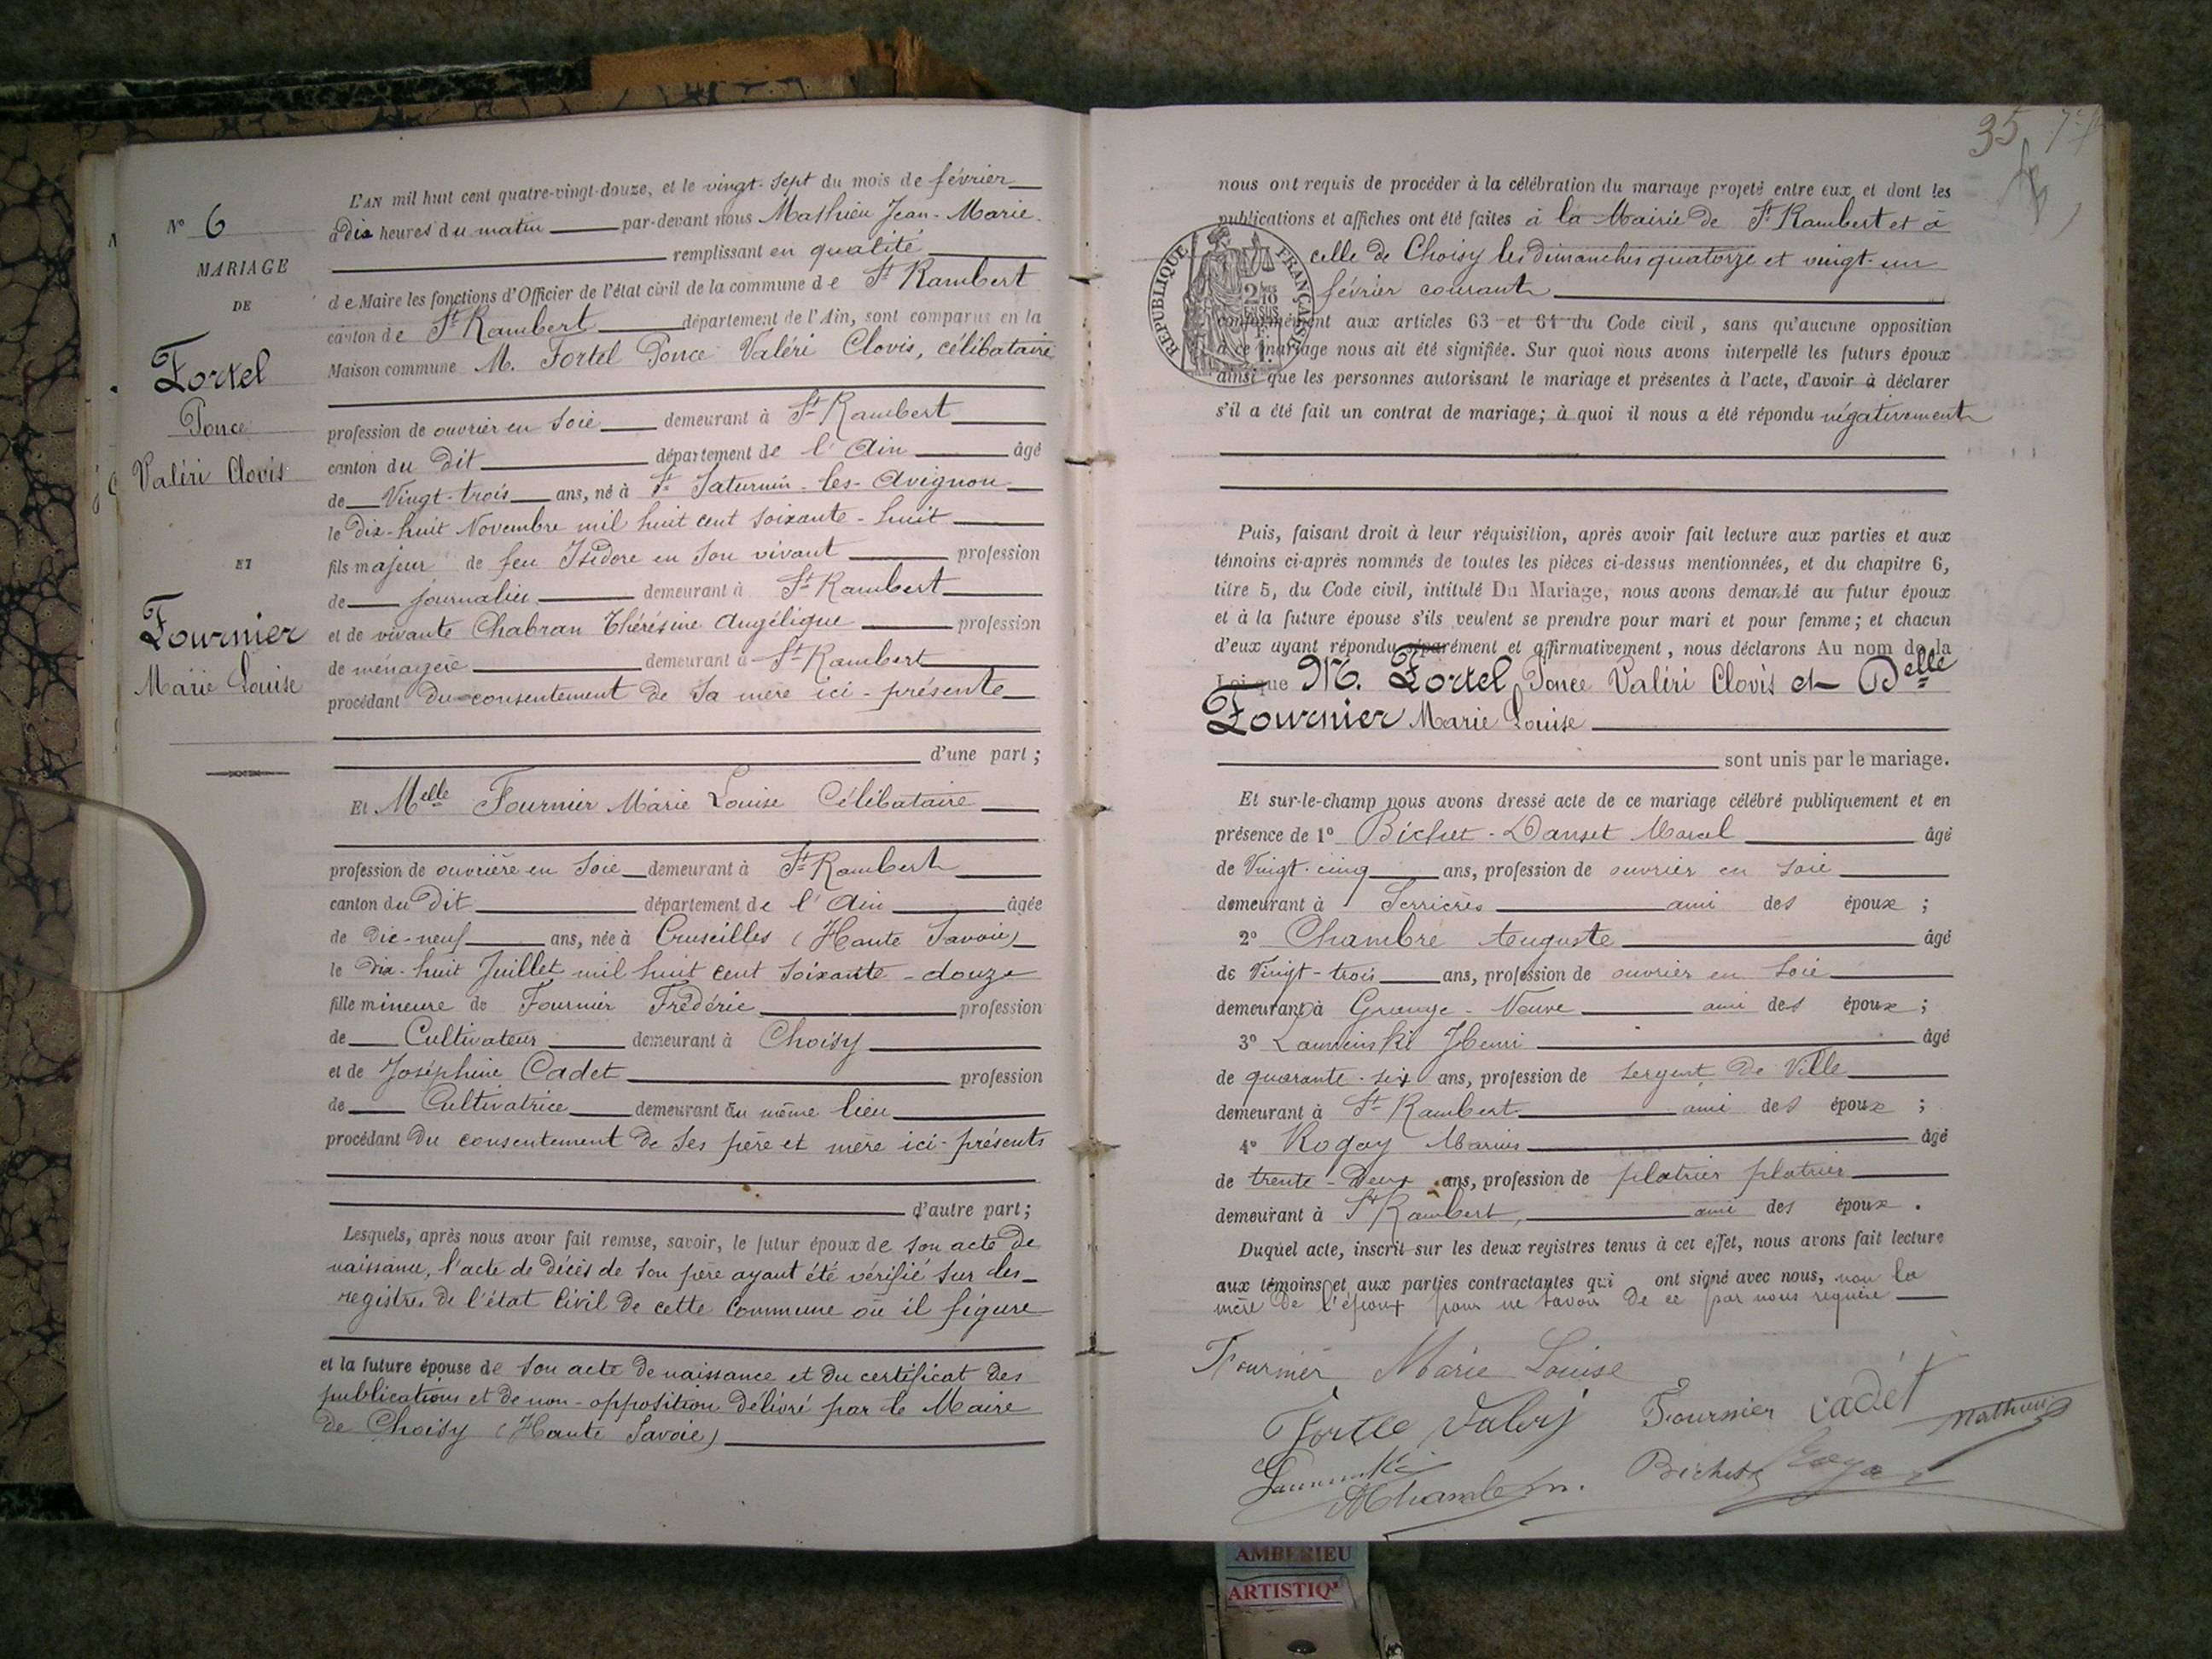 L'AN mil huit cent quatre-vingt-douze, et le vingt-sept du mois de février
à dix heures du matin par-devant nous Mathieu Jean-Marie
remplissant en qualité
de Maire les fonctions d'Officier de l'état civil de la commune de St Rambert
canton de St Rambert département de l'Ain, sont comparus en la
Maison commune M. Fortel Ponce Valéri Clovis, célibataire
profession de ouvrier en soie demeurant à St Rambert
canton du dit département de l'Ain âgé
de Vingt-trois ans, né à St Saturnin-les-Avignon
le dix-huit Novembre mil huit cent soixante-huit
fils majeur de feu Isidore en son vivant profession
de journalier demeurant à St Rambert
et de vivante Chabran Thérésine Angélique profession
de ménagère demeurant à St Rambert
procédant du consentement de sa mère ici-présente
d'une part;
N° 6
MARIAGE
DE
Fortel
Ponce
Valéri Clovis
ET
Fournier
Marie Louise
Et Melle Fournier Marie Louise Célibataire
profession de ouvrière en soie demeurant à St Rambert
canton du dit département de l'Ain âgée
de dix-neuf ans, née à Cruseilles (Haute Savoie)
le dix-huit Juillet mil huit cent soixante-douze
fille mineure de Fournier Frédéric profession
de Cultivateur demeurant à Choisy
et de Joséphine Cadet profession
de Cultivatrice demeurant au même lieu
procédant du consentement de ses père et mère ici-présents
d'autre part;
Lesquels, après nous avoir fait remise, savoir, le futur époux de son acte de
naissance, l'acte de décès de son père ayant été vérifié sur les
registres de l'état civil de cette commune où il figure
et la future épouse de son acte de naissance et du certificat des
publications et de non-opposition délivré par le Maire
de Choisy (Haute Savoie)
35
nous ont requis de procéder à la célébration du mariage projeté entre eux et dont les
publications et affiches ont été faites à la Mairie de St Rambert et à
celle de Choisy les dimanches quatorze et vingt-un
février courant
RÉPUBLIQUE FRANÇAISE
conformément aux articles 63 et 64 du Code civil, sans qu'aucune opposition
à ce mariage nous ait été signifiée. Sur quoi nous avons interpellé les futurs époux
ainsi que les personnes autorisant le mariage et présentes à l'acte, d'avoir à déclarer
s'il a été fait un contrat de mariage; à quoi il nous a été répondu négativement
Puis, faisant droit à leur réquisition, après avoir fait lecture aux parties et aux
témoins ci-après nommés de toutes les pièces ci-dessus mentionnées, et du chapitre 6,
titre 5, du Code civil, intitulé Du Mariage, nous avons demandé au futur époux
et à la future épouse s'ils veulent se prendre pour mari et pour femme; et chacun
d'eux ayant répondu séparément et affirmativement, nous déclarons Au nom de la
Loi que M. Fortel Ponce Valéri Clovis et Delle
Fournier Marie Louise
sont unis par le mariage.
Et sur-le-champ nous avons dressé acte de ce mariage célébré publiquement et en
présence de 1° Bichet-Danset Marcel âgé
de Vingt-cinq ans, profession de ouvrier en soie
demeurant à Serrières ami des époux;
2° Chambre Auguste âgé
de Vingt-trois ans, profession de ouvrier en soie
demeurant à Grange-Neuve ami des époux;
3° Henri âgé
de quarante-six ans, profession de sergent de Ville
demeurant à St Rambert ami des époux;
4° Rogay Marius âgé
de trente-deux ans, profession de platrier platrier
demeurant à St Rambert, ami des époux.
Duquel acte, inscrit sur les deux registres tenus à cet effet, nous avons fait lecture
aux témoins et aux parties contractantes qui ont signé avec nous, non la
mère de l'époux pour ne savoir de ce par nous requise
Fournier Marie Louise
Fortel Valery Fournier cadet Mathieu
Bichet
AMBERIEU
ARTISTIQ'